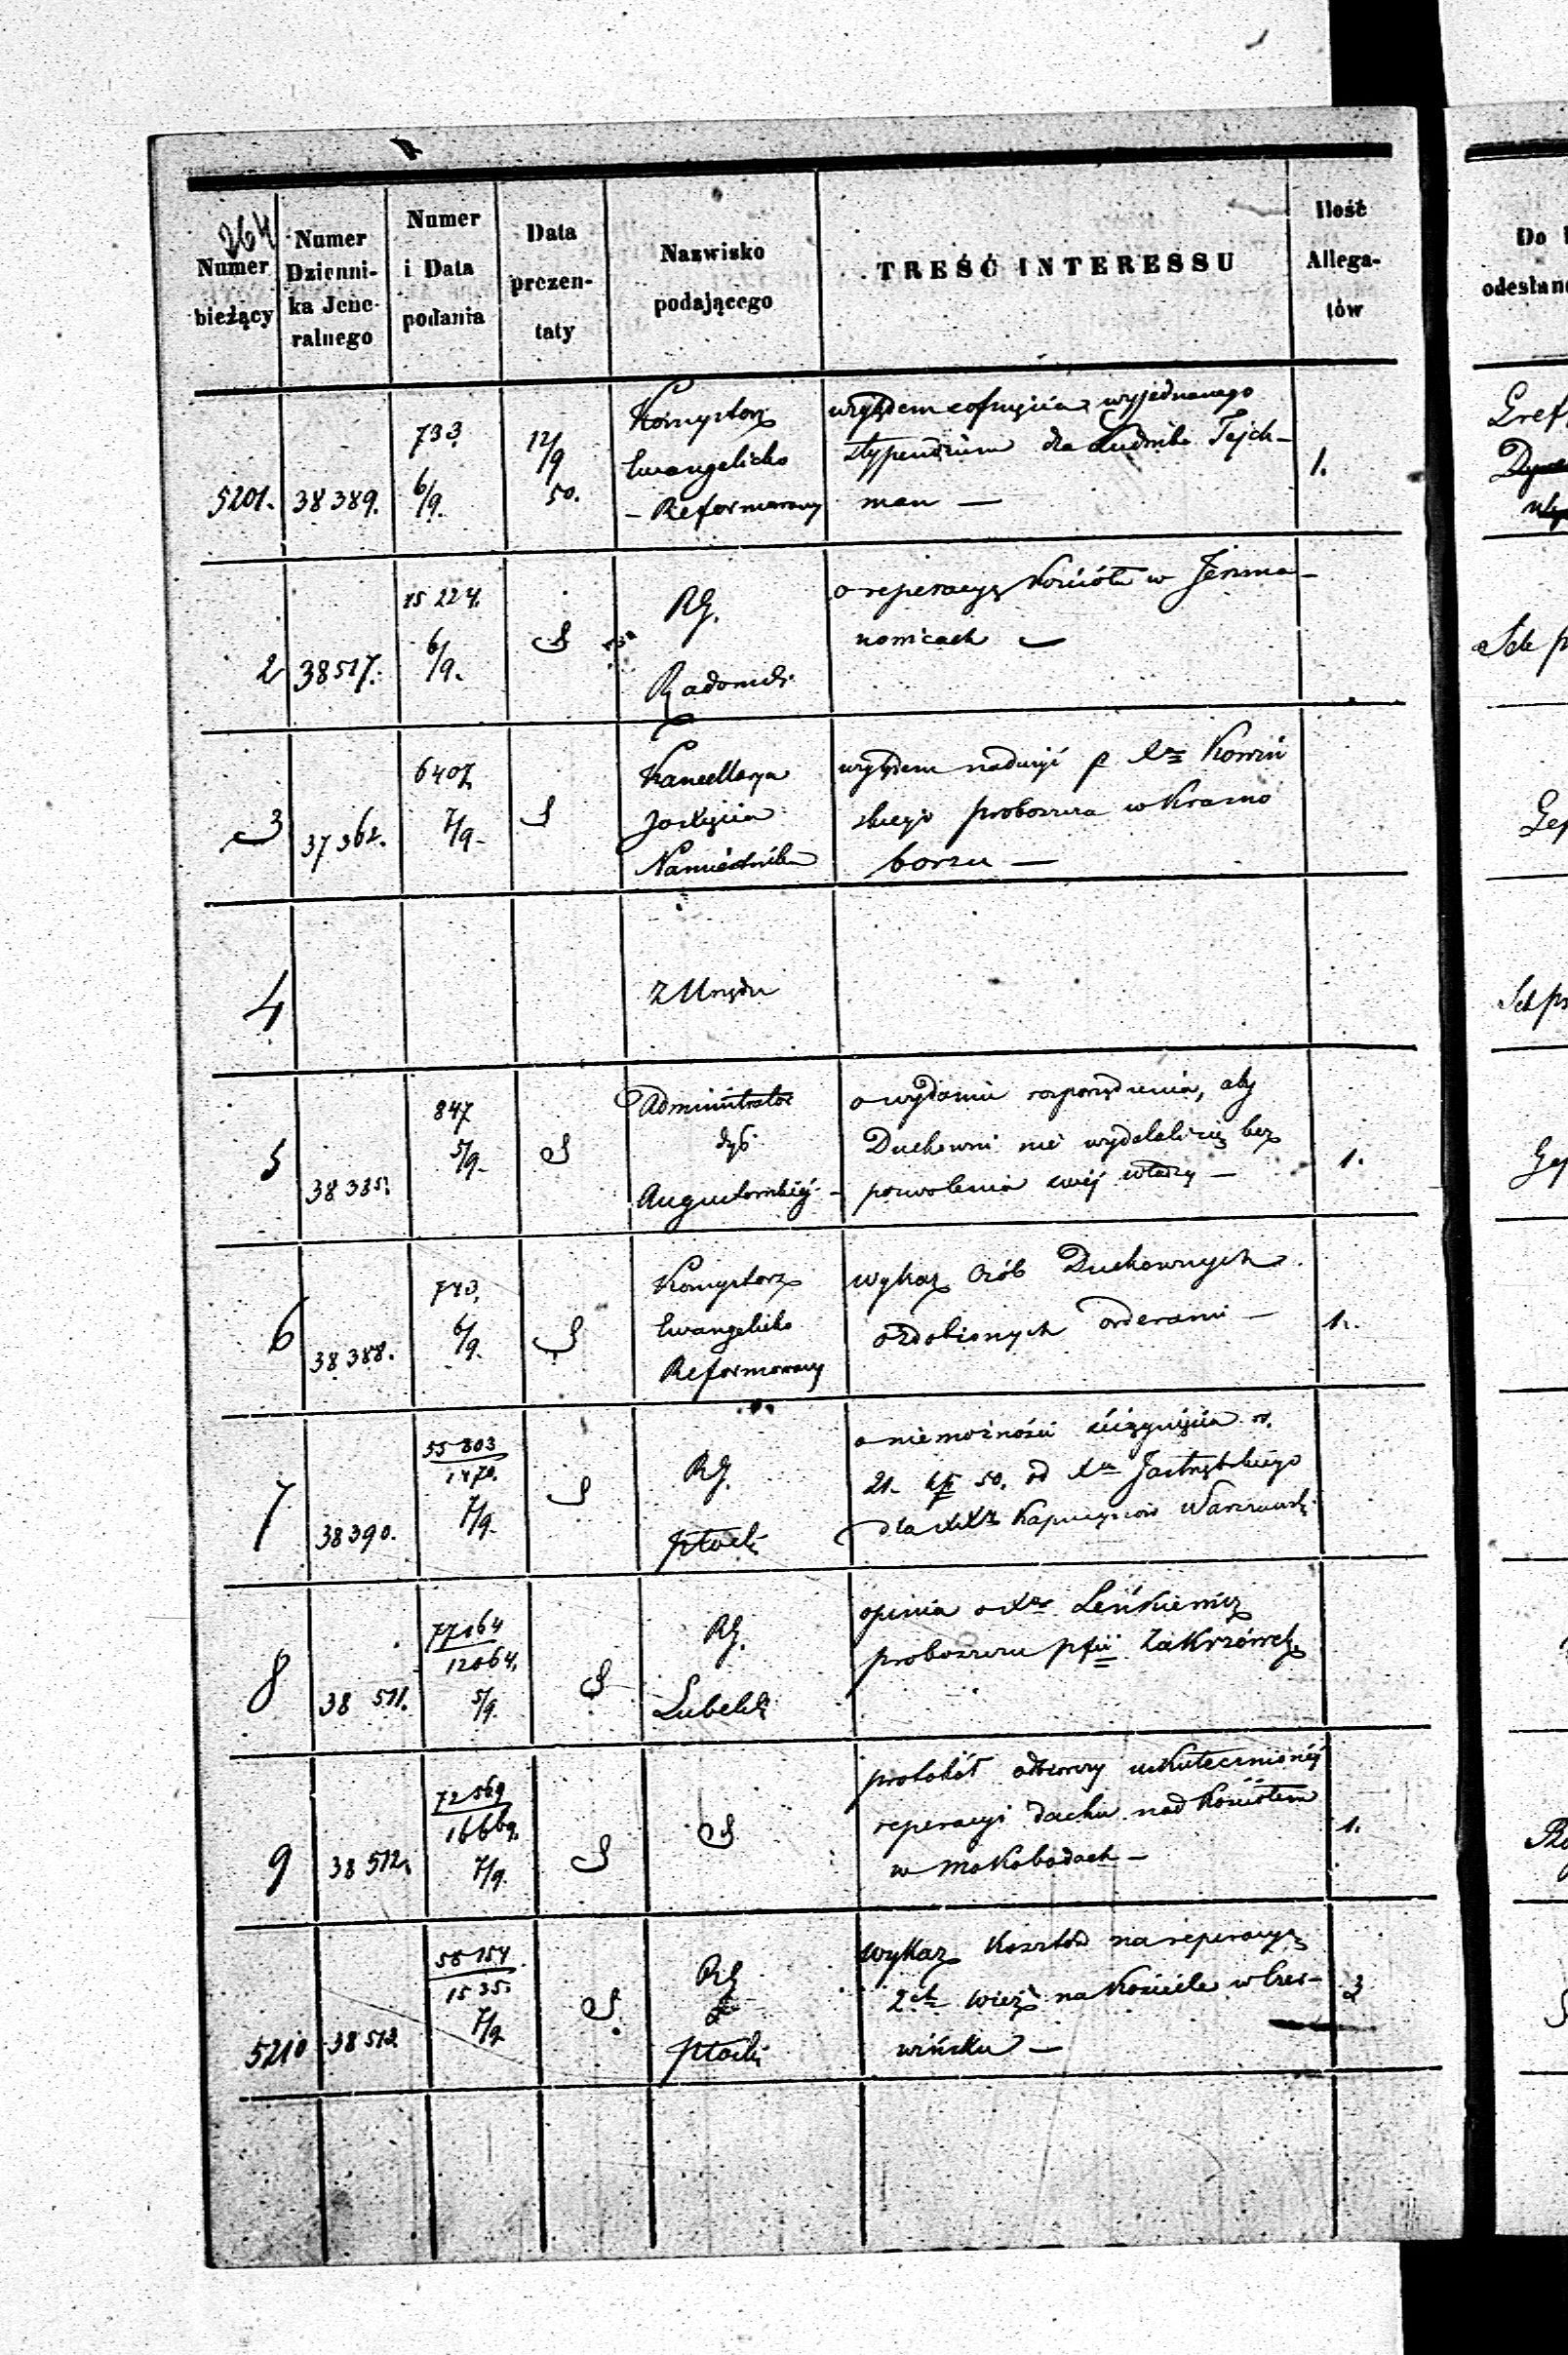 264
Numer bieżący
Numer Dzienni-ka Jene-ralnego
Numer i Data podania
Data prezen-taty
Nazwisko podającego
TREŚĆ INTERESSU
Ilość Allega-tów
Do
odesłan
5201. 38389. 733 6/9. 12/9 50.
Konsystorz
Ewangelicko
- Reformowany
względem cofnięcia wyjednanego
stypendium dla Ludwika Tejch-
man —
1.
2 38517. 15224. 6/9.
RG.
Radomski
o reperacyę kościoła w Jerzma-
nowicach —
3 37362. 6407 7/9.
Kancellarya
Jaśnie
Namiestnika
względem nadużyć Xa
skiego proboszcza w Krasno
borzu —
4
Z Urzędu
5 38385. 847 5/9.
Administrator
dyec.
Augustowskiej -
o wydanie rozporządzenia, aby
Duchowni nie wydalali się bez
pozwolenia swej władzy —
1.
6 38388. 743, 6/9.
Konsystorz
Ewangelicko
Reformowany
wykaz Osób Duchownych
ozdobionych orderami —
1.
7 38390. 55803 / 1470. 7/9.
RG.
Płocki
o niemożności ściągnięcia r.
21. kp. 50. od Xa Jastrzębskiego
dla XX. Kapucynów Warszawsk.
8 38 511. 77164 / 12064. 5/9.
RG.
Lubelski
opinia o Xa Leńkiewicz
proboszczu pfii Zakrzówek
9 38512. 72569 / 16669. 7/9.
protokół odbiorczy uskutecznionej
reperacyi dachu nad kościołem
w Mokobodach —
1.
5210 38513 56154 / 1535. 7/9.
RG
Płocki
wykaz kosztów na reperacyę
2ch wież na kościele w Czer-
wińsku —
3